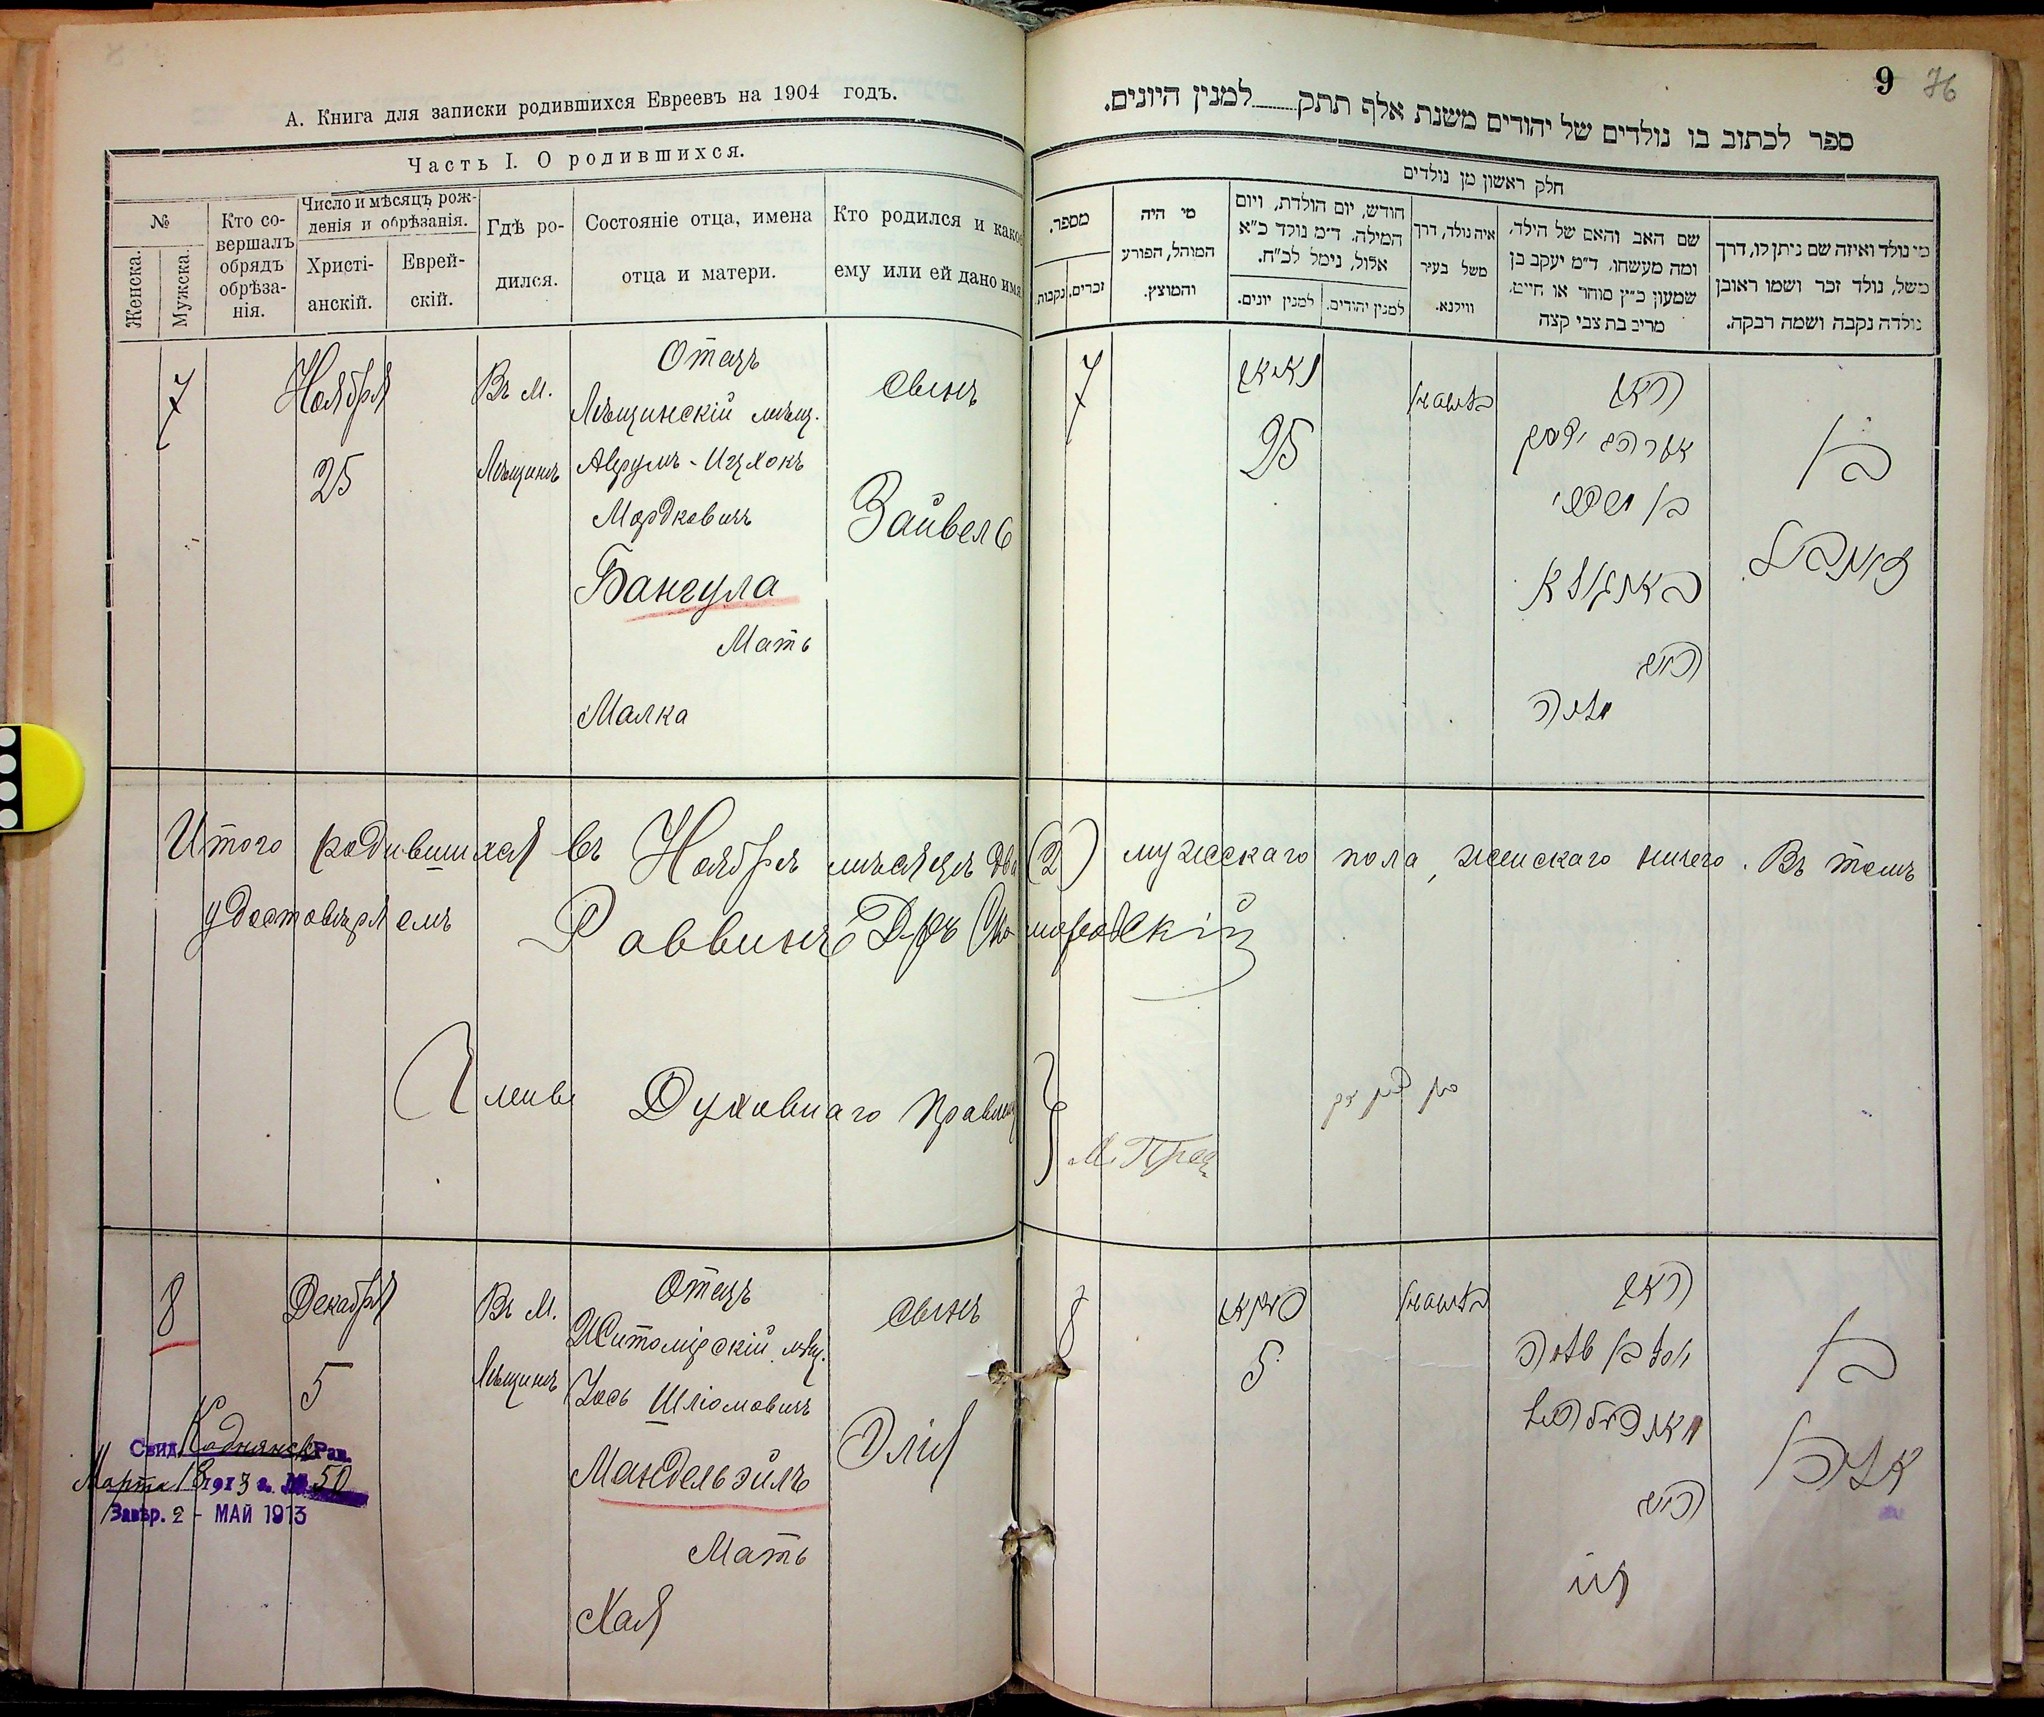 А. Книга для записки родившихся Евреевъ на 1904 годъ.
Часть I. О родившихся.
№
Женска.
Мужска.
Кто со-
вершалъ
обрядъ
обрѣза-
нія.
Число и мѣсяцъ рож-
денія и обрѣзанія.
Христі-
анскій.
Еврей-
скій.
Гдѣ ро-
дился.
Состояніе отца, имена
отца и матери.
Кто родился и какое
ему или ей дано имя
7
Ноября
25
Въ м.
Лѣщинѣ
Отецъ
Лѣщинскій мѣщ.
Аврумъ-Ицхокъ
Мордковичъ
Бангула
Мать
Малка
Сынъ
Зайвель
Итого родившихся въ Ноябрѣ мѣсяцѣ два (2) мужескаго пола, женскаго ничего. Въ томъ
удостовѣряемъ Раввинъ Д-ръ
Члены Духовнаго Правленія
8
Декабря
5
Въ М.
Лѣщинѣ
Отецъ
Житомірскій мѣщ.
Іось Шліомовичъ
Мандельэйль
Мать
Хая
Сынъ
Элія
Свид. Коднянск Рав.
Марта 18 1913 г. № 50
Завѣр. 2 - МАЙ 1913
9 76
ספר לכתוב בו נולדים של יהודים משנת אלף תתק למנין היונים.
חלק ראשון מן נולדים
מספר.
זכרים.
נקבות.
מי היה
המוהל, הפורע
והמוצץ.
חודש, יום הולדת, ויום
המילה. ד״מ נולד כ״א
אלול, נימל לכ״ח.
למנין יונים.
למנין יהודים.
איה נולד, דרך
משל בעיר
ווילנא.
שם האב והאם של הילד,
ומה מעשהו. ד״מ יעקב בן
שמעון כ״ץ סוחר או חייט,
מרים בת צבי קצה
מי נולד ואיזה שם ניתן לו, דרך
משל, נולד זכר ושמו ראובן
נולדה נקבה ושמה רבקה.
7
נאיאב
25
האב
אברהם יצחק
בן מרדכי
באנגולא
האם
מלכה
בן
זיינוול
М.
8
דעקאב
5
האב
יוסל בן שלמה
מאנדעלהייל
האם
חיה
בן
אליה